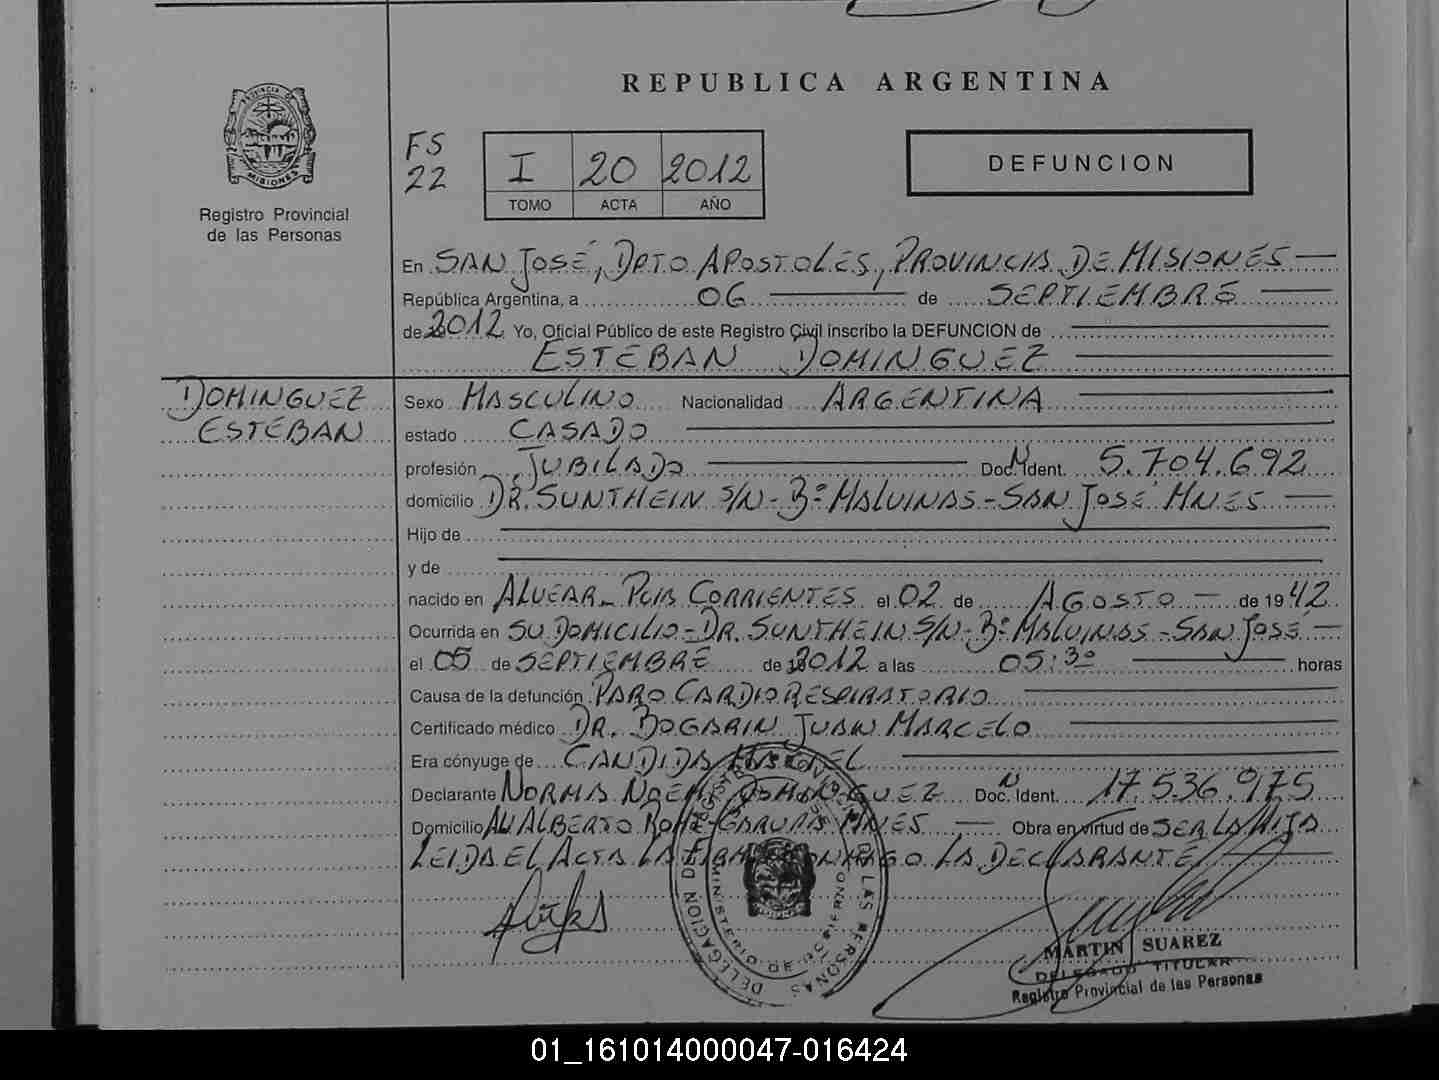 REPUBLICA ARGENTINA
PROVINCIA DE
MISIONES
Registro Provincial
de las Personas
FS
22
I 20 2012
TOMO ACTA AÑO
DEFUNCION
En SAN JOSÉ, DPTO APOSTOLES, PROVINCIA DE MISIONES
República Argentina, a 06 de SEPTIEMBRE
de 2012 Yo, Oficial Público de este Registro Civil inscribo la DEFUNCION de
ESTEBAN DOMINGUEZ
DOMINGUEZ
ESTEBAN
Sexo MASCULINO Nacionalidad ARGENTINA
estado CASADO
profesión JUBILADO Doc. N Ident. 5.704.692
domicilio DR. SUNTHEIN S/N - Bº MALVINAS - SAN JOSÉ MNES
Hijo de
y de
nacido en ALVEAR - PCIA CORRIENTES el 02 de AGOSTO de 1942
Ocurrida en SU DOMICILIO - DR. SUNTHEIN S/N - Bº MALVINAS - SAN JOSÉ
el 05 de SEPTIEMBRE de 2012 a las 05:30 horas
Causa de la defunción PARO CARDIORESPIRATORIO
Certificado médico DR. BOGARIN JUAN MARCELO
Era cónyuge de CANDIDA
Declarante NORMA NOEMI DOMINGUEZ Doc. N Ident. 17.536.975
Domicilio AV ALBERTO GARUPA MNES Obra en virtud de SER LA HIJA
LEIDA EL ACTA LA FIRMA CONMIGO LA DECLARANTE
DELEGACION DE LAS PERSONAS
MINISTERIO DE GOBIERNO
MARTIN SUAREZ
DELEGADO TITULAR
Registro Provincial de las Personas
01_161014000047-016424